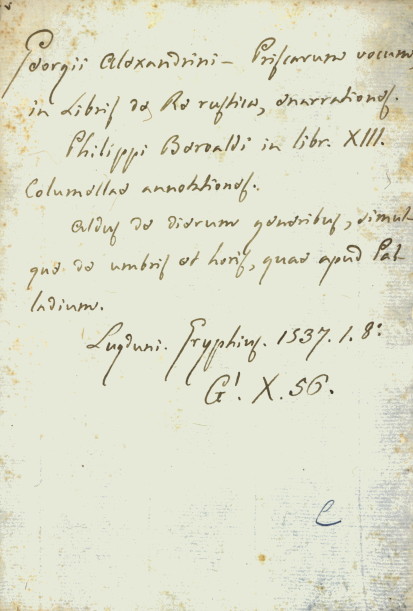 Georgii Alexandrini – Priscarum vocum
in Libris de Re rustica, enarrationes.
Philippi Beroaldi in libr. XIII.
Columellae annotationes.
Aldus de dierum generibus, simul-
que de umbris et horis, quae apud Pal-
ladium.
Lugduni. Gryphius. 1537. 1. 8:
G! X. 56.
e